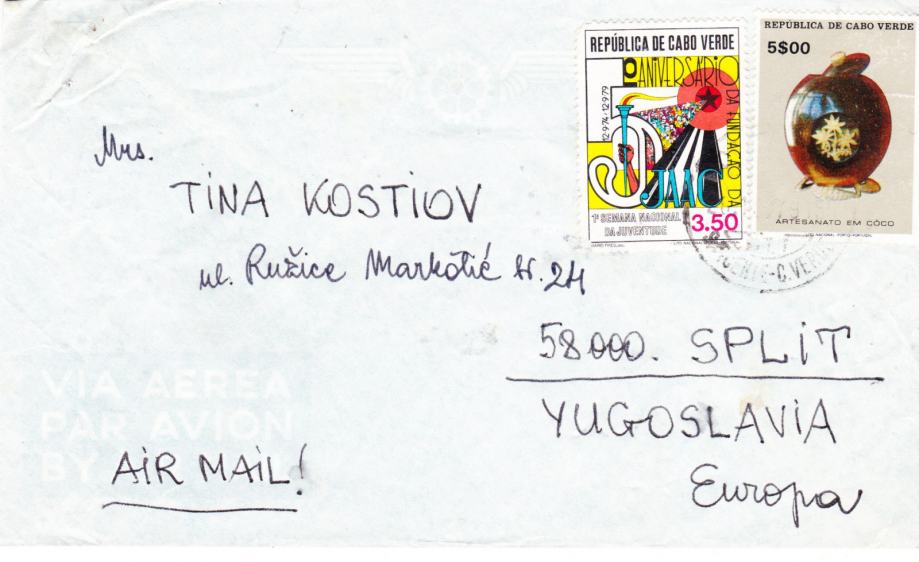 REPÚBLICA DE CABO VERDE
5º ANIVERSÁRIO DA FUNDAÇÃO DA
12·9·974·12·9·79
JAAC
1ª SEMANA NACIONAL
DA JUVENTUDE
3.50
REPÚBLICA DE CABO VERDE
5$00
ARTESANATO EM CÔCO
C. VERDE
Mrs.
TINA KOSTIOV
ul. Ružice Markotić br. 24
58000. SPLIT
YUGOSLAVIA
Europa
VIA AEREA
PAR AVION
BY
AIR MAIL!